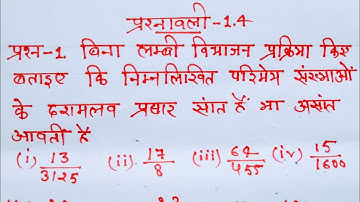 प्रश्नावली -1.4
प्रश्न-1. बिना लम्बी विभाजन प्रक्रिया किए
बताइए कि निम्नलिखित परिमेय संख्याओं
के दशमलव प्रसार सांत हैं या असांत
आवर्ती हैं
(i) 13/3125 (ii) 17/8 (iii) 64/455 (iv) 15/1600